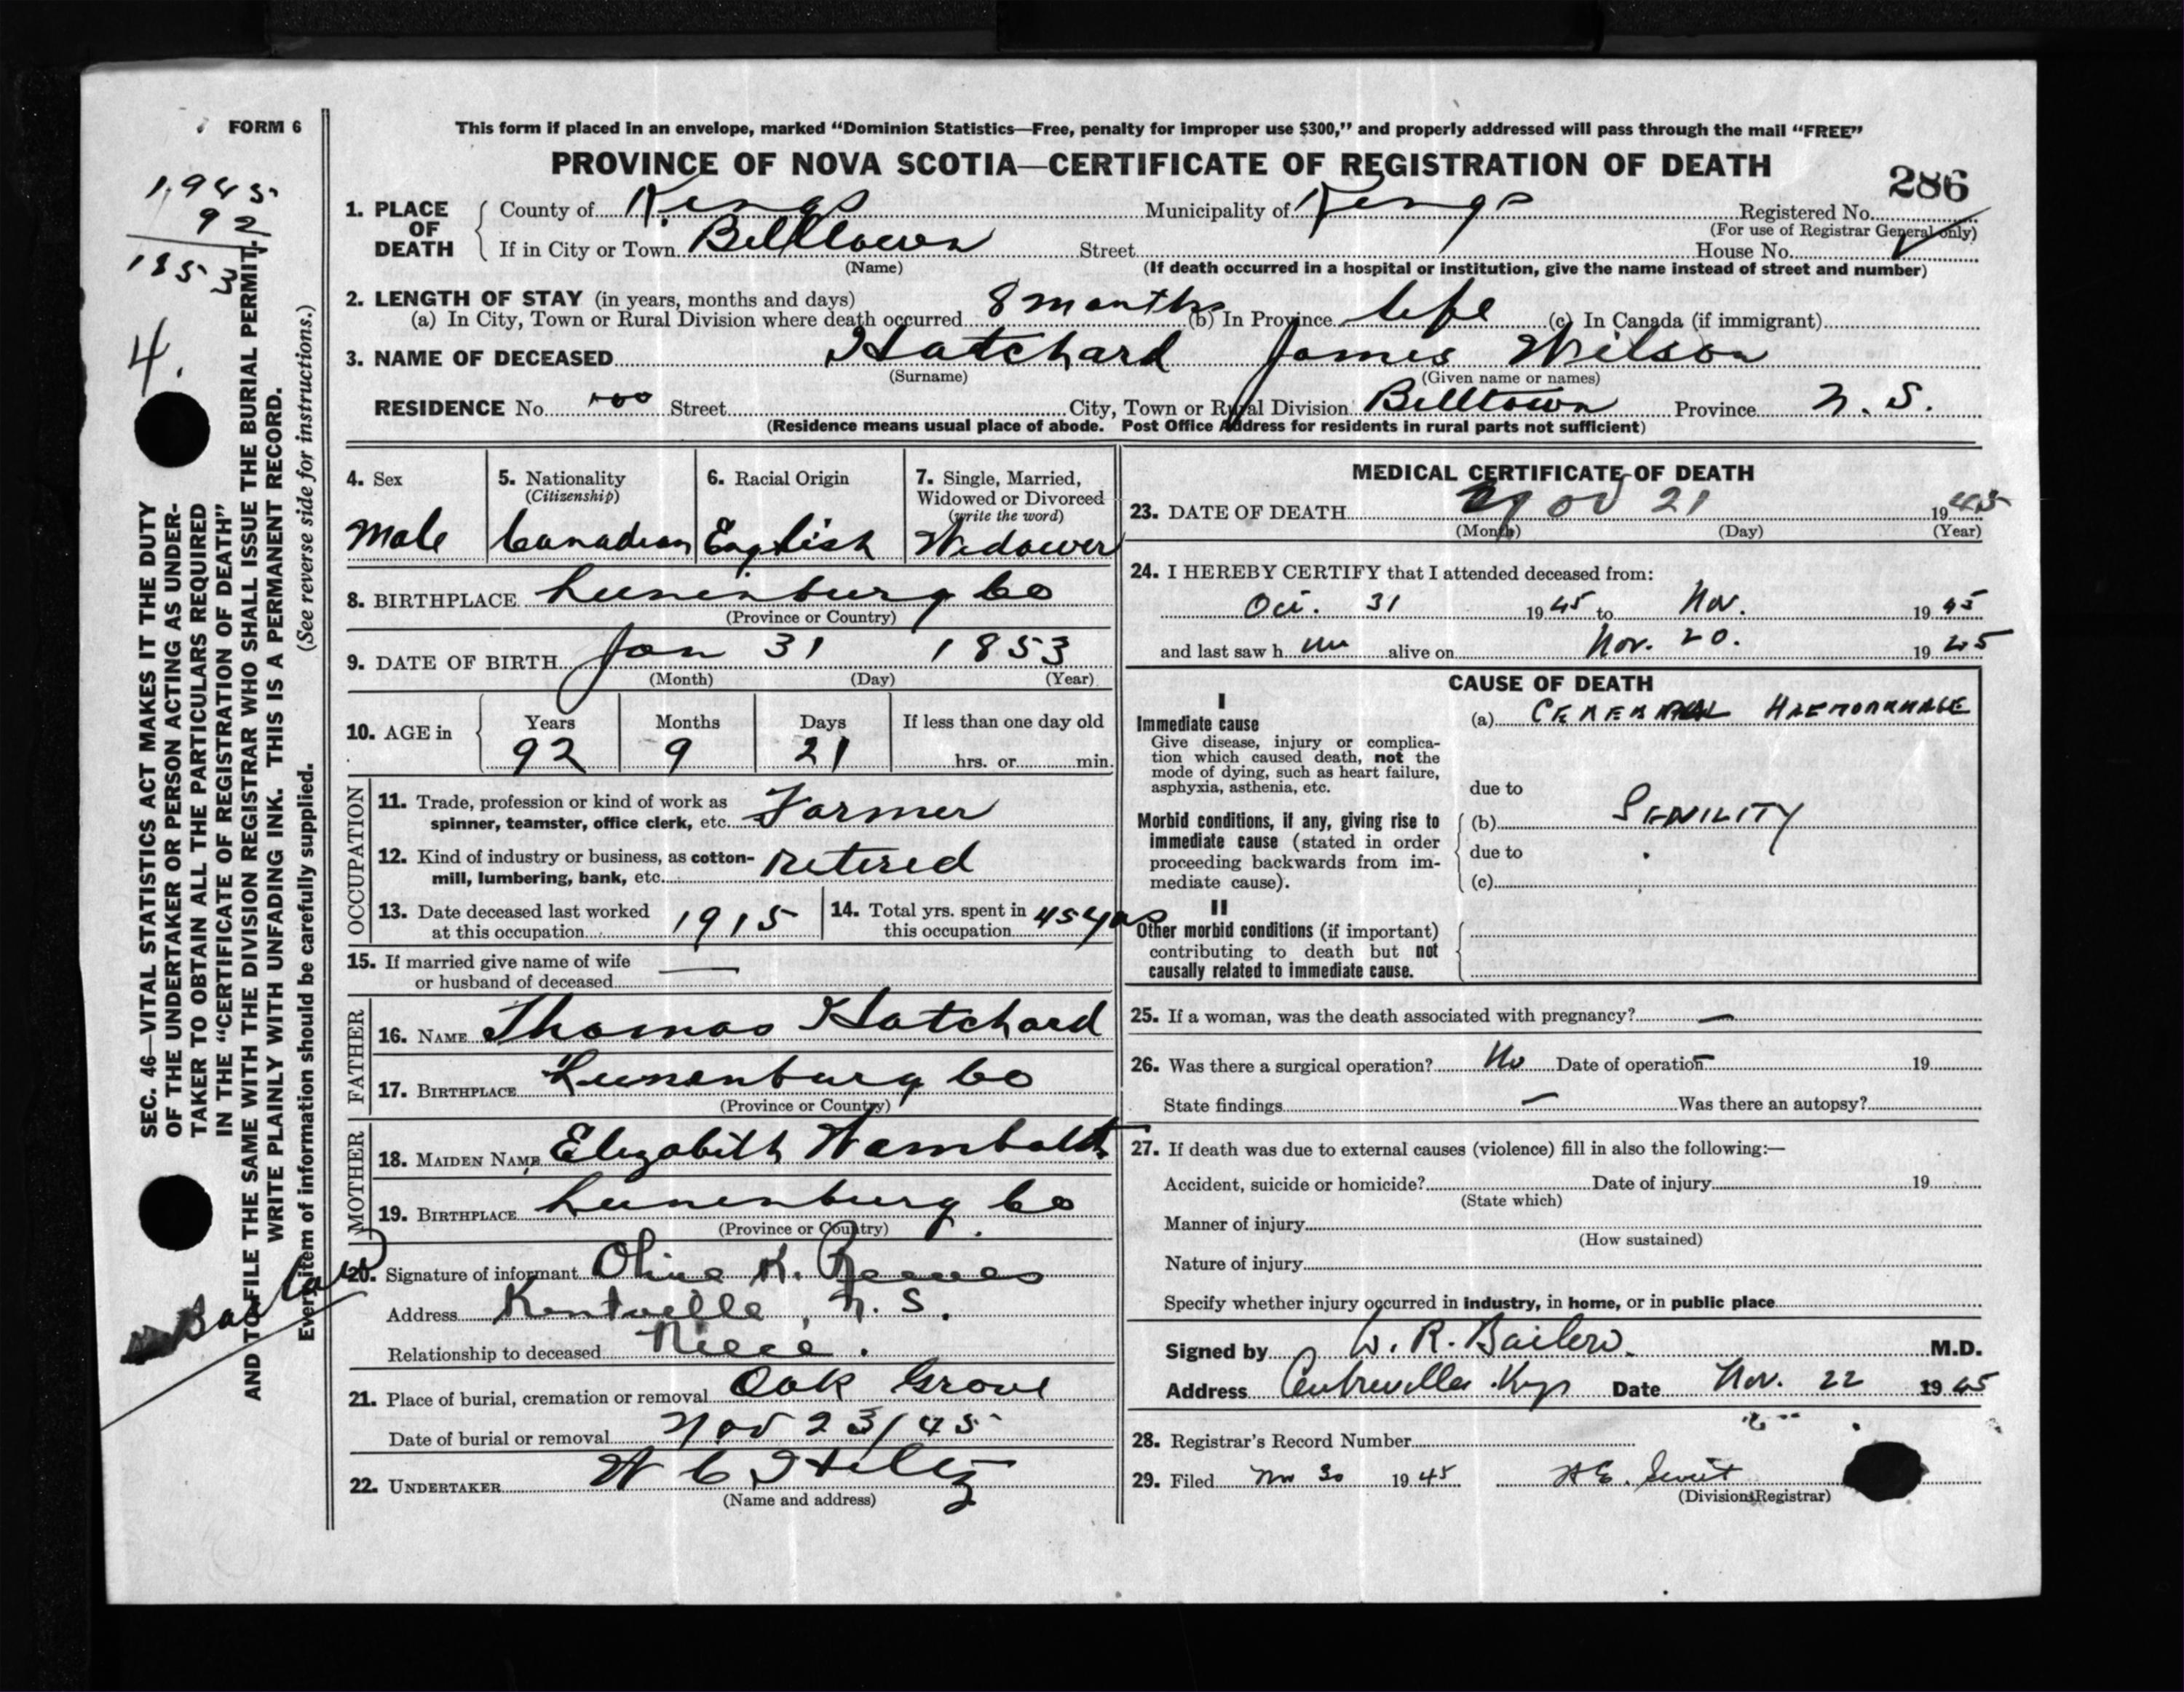 FORM 6
This form if placed in an envelope, marked “Dominion Statistics—Free, penalty for improper use $300,” and properly addressed will pass through the mail “FREE”
PROVINCE OF NOVA SCOTIA—CERTIFICATE OF REGISTRATION OF DEATH
286
1945
92
1853
4.
1. PLACE OF DEATH
County of Kings Municipality of Kings Registered No.
(For use of Registrar General only)
If in City or Town Billtown Street House No.
(Name)
(If death occurred in a hospital or institution, give the name instead of street and number)
2. LENGTH OF STAY (in years, months and days)
(a) In City, Town or Rural Division where death occurred 8 months (b) In Province life (c) In Canada (if immigrant)
3. NAME OF DECEASED Hatchard James Wilson
(Surname) (Given name or names)
RESIDENCE No. Street City, Town or Rural Division Billtown Province N. S.
(Residence means usual place of abode. Post Office Address for residents in rural parts not sufficient)
4. Sex
Male
5. Nationality
(Citizenship)
Canadian
6. Racial Origin
English
7. Single, Married,
Widowed or Divorced
(write the word)
Widower
8. BIRTHPLACE Lunenburg Co
(Province or Country)
9. DATE OF BIRTH Jan 31 1853
(Month) (Day) (Year)
10. AGE in Years Months Days If less than one day old
92 9 21 hrs. or min.
OCCUPATION
11. Trade, profession or kind of work as
spinner, teamster, office clerk, etc. Farmer
12. Kind of industry or business, as cotton-
mill, lumbering, bank, etc. retired
13. Date deceased last worked
at this occupation 1915
14. Total yrs. spent in
this occupation 45 yrs
15. If married give name of wife
or husband of deceased —
FATHER
16. NAME Thomas Hatchard
17. BIRTHPLACE Lunenburg Co
(Province or Country)
MOTHER
18. MAIDEN NAME Elizabeth Wambolt
19. BIRTHPLACE Lunenburg Co
(Province or Country)
20. Signature of informant Olive K. Reeves
Address Kentville, N. S.
Relationship to deceased Niece.
21. Place of burial, cremation or removal Oak Grove
Date of burial or removal Nov 23/45
22. UNDERTAKER W C Hiltz
(Name and address)
MEDICAL CERTIFICATE OF DEATH
23. DATE OF DEATH Nov 21 1945
(Month) (Day) (Year)
24. I HEREBY CERTIFY that I attended deceased from:
Oct. 31 1945 to Nov. 1945
and last saw h im alive on Nov. 20. 1945
CAUSE OF DEATH
I
Immediate cause
Give disease, injury or complica-
tion which caused death, not the
mode of dying, such as heart failure,
asphyxia, asthenia, etc.
(a) CEREBRAL HAEMORRHAGE
due to
Morbid conditions, if any, giving rise to
immediate cause (stated in order
proceeding backwards from im-
mediate cause).
(b) SENILITY
due to
(c)
II
Other morbid conditions (if important)
contributing to death but not
causally related to immediate cause.
25. If a woman, was the death associated with pregnancy? —
26. Was there a surgical operation? No Date of operation — 19
State findings — Was there an autopsy?
27. If death was due to external causes (violence) fill in also the following:—
Accident, suicide or homicide? Date of injury 19
(State which)
Manner of injury
(How sustained)
Nature of injury
Specify whether injury occurred in industry, in home, or in public place
Signed by W. R. M.D.
Address Centreville Kings Date Nov. 22 1945
28. Registrar's Record Number
29. Filed Nov 30 1945
(Division Registrar)
SEC. 46—VITAL STATISTICS ACT MAKES IT THE DUTY
OF THE UNDERTAKER OR PERSON ACTING AS UNDER-
TAKER TO OBTAIN ALL THE PARTICULARS REQUIRED
IN THE “CERTIFICATE OF REGISTRATION OF DEATH”
AND TO FILE THE SAME WITH THE DIVISION REGISTRAR WHO SHALL ISSUE THE BURIAL PERMIT.
WRITE PLAINLY WITH UNFADING INK. THIS IS A PERMANENT RECORD.
Every item of information should be carefully supplied. (See reverse side for instructions.)